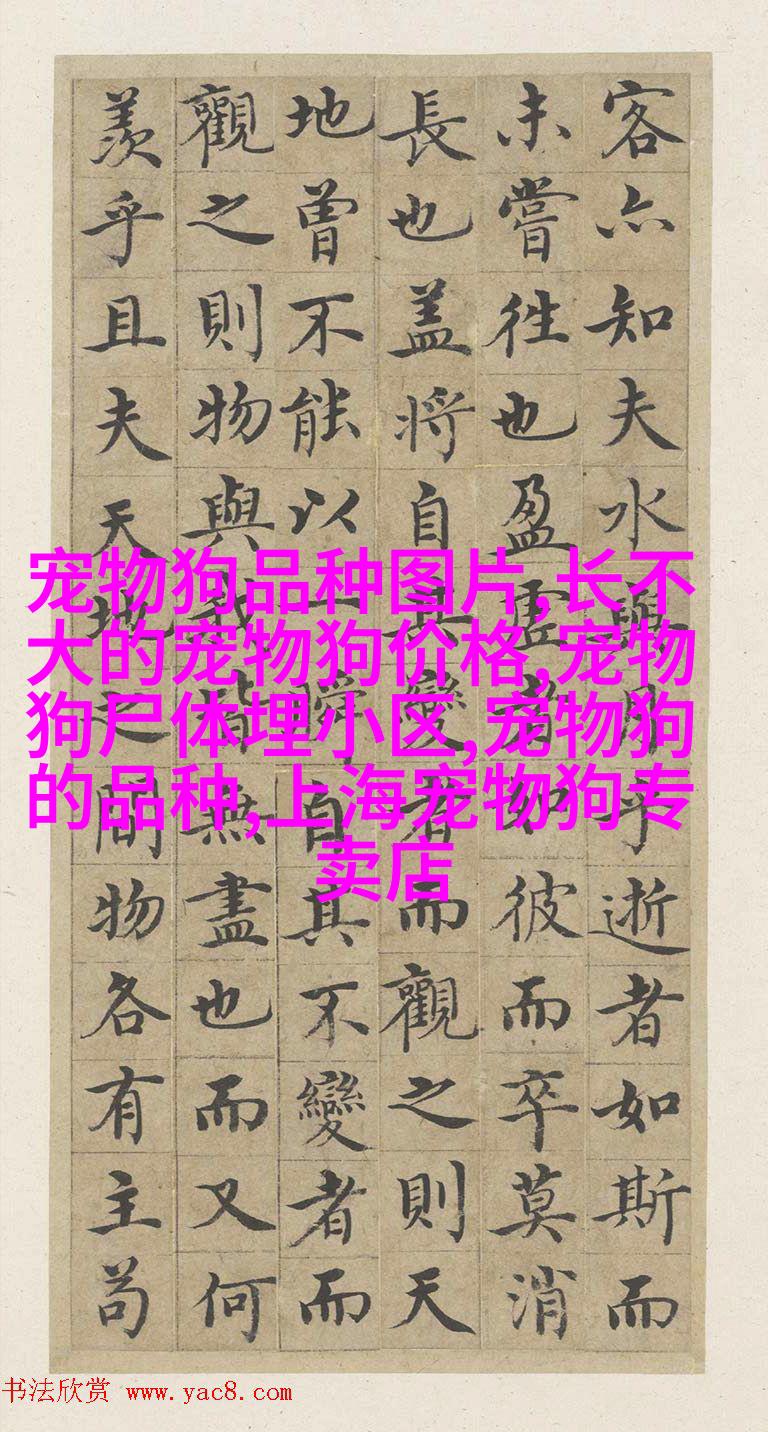 客亦知夫水與月乎逝者如斯而
未嘗往也盈虛者如彼而卒莫消
長也盖将自其變者而觀之則天
地曾不能以一瞬自其不變者而
觀之則物與我皆無盡也而又何
羨乎且夫天地之間物各有主苟
宠物狗品种图片,长不
大的宠物狗价格,宠物
狗尸体埋小区,宠物狗
的品种,上海宠物狗专
卖店
书法欣赏 www.yac8.com